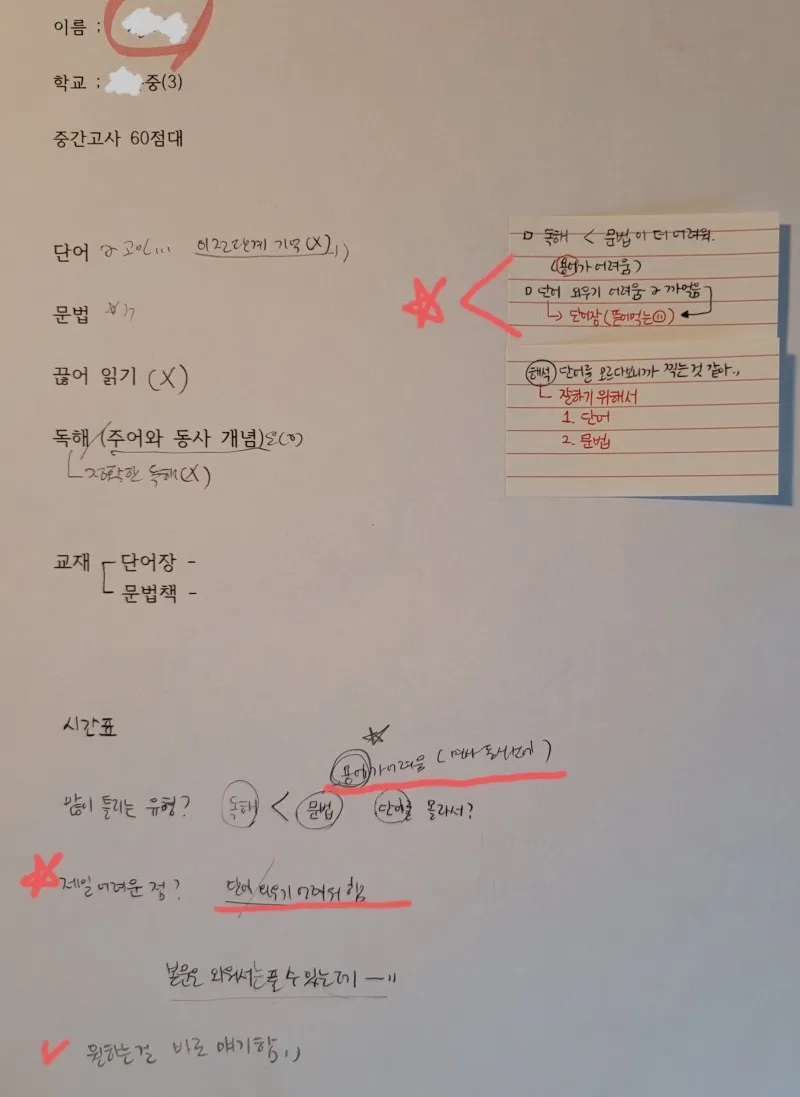 이름 ;
학교 ; 중(3)
중간고사 60점대
단어 이전단계 기억(X)
문법
끊어 읽기 (X)
독해 (주어와 동사 개념)
정확한 독해(X)
교재 단어장 -
문법책 -
□ 독해 < 문법이 더 어려워.
(용어가 어려움)
□ 단어 외우기 어려움 까먹음
단어장(뜯어먹는
해석 단어를 모르다보니까 찍는것 같아..
잘하기 위해서
1. 단어
2. 문법
시간표
용어가 어려움
많이 틀리는 유형? 독해 < 문법 단어를 몰라서?
제일 어려운 점? 단어 외우기 어려워 함
본문은 외워서는 풀 수 있는데
원하는걸 바로 얘기함